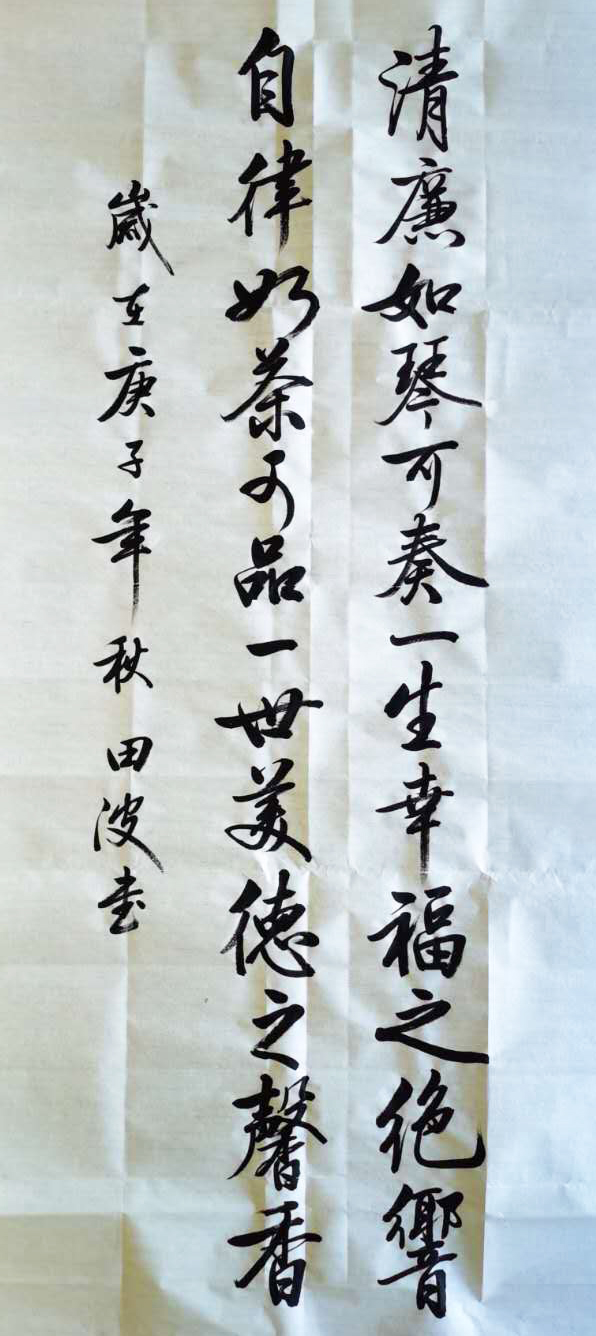 清廉如琴可奏一生幸福之绝響
自律如茶可品一世美德之馨香
歲在庚子年秋田波书